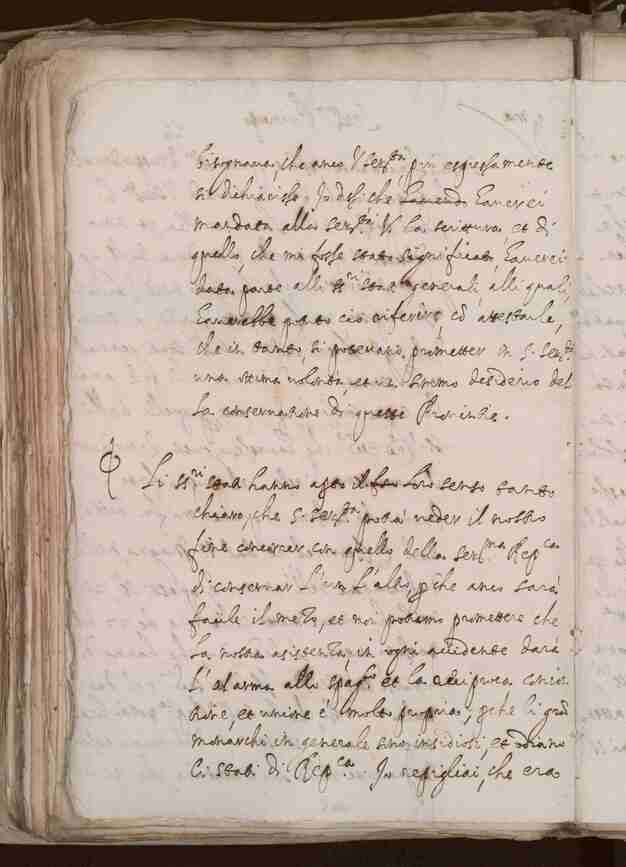 bisognava, che anco V. Ser.tà più espressamente
si dichiarisse. Io dissi che haverei
mandata alla Ser.tà V. la scrittura et di
quello, che mi fosse stato significato, haverei
data parte alli ss.ri stati generali, alli quali,
piacerebbe questo riferire, et attestarle,
che in tanto, si potevano prometter in S. Ser.tà
una ottima volontà, et un estremo desiderio del
la conservatione di queste Provincie.
Li ss.ri stati hanno il loro senso tanto
chiaro, che S. Ser.tà potrà veder il nostro
fine concorrer con quello della Ser.ma Rep.ca
di conservar l'un l'altro, perche anco sarà
facile il mezo, et noi potiamo promettere che
la nostra assistenza in ogni accidente darà
l'alarma alli spag.li et la reciproca
et unione è molto propria, perche li gran
monarchi in generale sono insidiosi, et odiano
li stati di Rep.ca. Io repigliai, che era